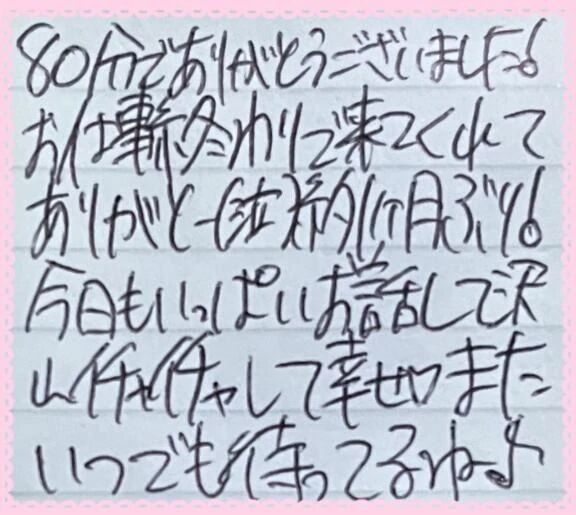 80分でありがとうございました!
お仕事終わりで来てくれて
ありがとー 約1ヶ月ぶり!
今日もいっぱいお話して沢
山イチャイチャして幸せっまた
いつでも待ってるね♪